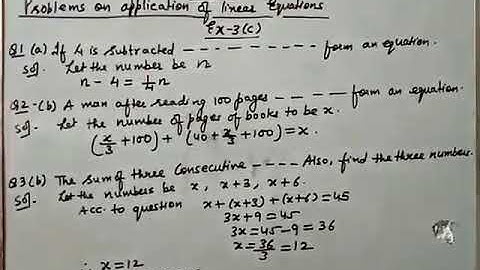 Problems on application of linear Equations
Ex-3(c)
Q1 (a) If 4 is subtracted – – – – – – – – – form an equation.
Sol. Let the number be n
n - 4 = 1/4 n
Q2-(b) A man after reading 100 pages – – – – form an equation.
Sol. Let the number of pages of books to be x.
(x/3 + 100) + (40 + x/3 + 100) = x.
Q3(b) The sum of three consecutive – – – – Also, find the three numbers.
Sol. Let the numbers be x, x+3, x+6.
Acc. to question x + (x+3) + (x+6) = 45
3x + 9 = 45
3x = 45 - 9 = 36
x = 36/3 = 12
∴ x = 12